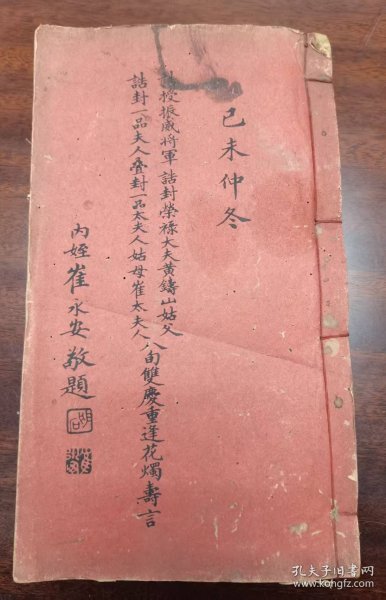 己未仲冬
授振威將軍 誥封榮祿大夫黃鑄山姑父
誥封一品夫人叠封一品太夫人姑母崔太夫人
八旬雙慶重逢花燭壽言
內姪崔永安敬題
孔夫子旧书网
www.kongfz.com